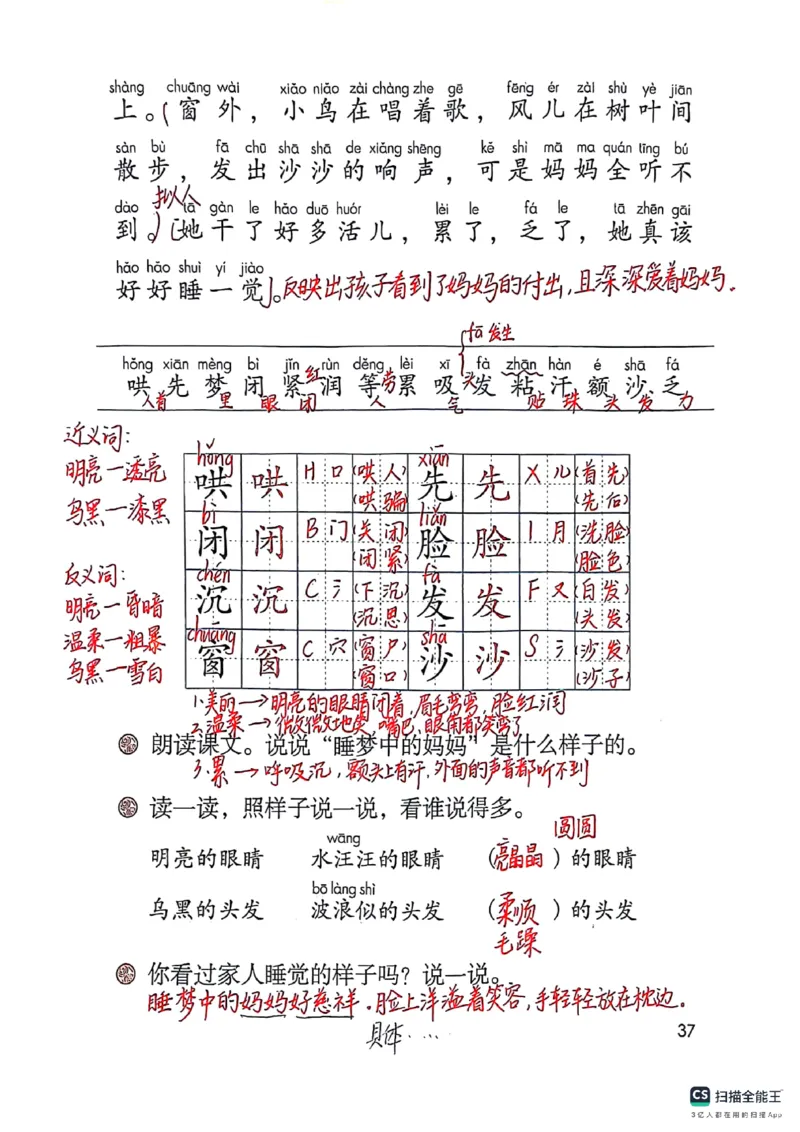 shàng chuāng wài xiǎo niǎo zài chàng zhe gē fēng ér zài shù yè jiān
上。(窗外，小鸟在唱着歌，风儿在树叶间
sàn bù fā chū shā shā de xiǎng shēng kě shì mā ma quán tīng bú
散步，发出沙沙的响声，可是妈妈全听不
拟人
dào tā gàn le hǎo duō huór lèi le fá le tā zhēn gāi
到。)〔她干了好多活儿，累了，乏了，她真该
hǎo hǎo shuì yí jiào
好好睡一觉〕。反映出孩子看到了妈妈的付出，且深深爱着妈妈.
fā 发生
hǒng xiān mèng bì jǐn rùn děng lèi xī fà zhān hàn é shā fá
哄先梦闭紧红润等劳累吸头发粘汗额沙乏
人首 里 眼 闭 人 气 贴 珠 头 发 力
近义词：
明亮—透亮
乌黑—漆黑
反义词：
明亮—昏暗
温柔—粗暴
乌黑—雪白
hǒng xiān
哄 哄 H 口 (哄人) (哄骗) 先 先 X 儿 (首先) (先后)
bì liǎn
闭 闭 B 门 (关闭) (闭紧) 脸 脸 l 月 (洗脸) (脸色)
chén fà
沉 沉 C 氵 (下沉) (沉思) 发 发 F 又 (白发) (头发)
chuāng shā
窗 窗 C 穴 (窗户) (窗口) 沙 沙 S 氵 (沙发) (沙子)
1.美丽→明亮的眼睛闭着，眉毛弯弯，脸红润
2.温柔→微微地笑 嘴巴、眼角都笑弯了
朗读课文。说说“睡梦中的妈妈”是什么样子的。
3.累→呼吸沉，额头上有汗，外面的声音都听不到
读一读，照样子说一说，看谁说得多。
圆圆
wāng
明亮的眼睛 水汪汪的眼睛 (亮晶晶)的眼睛
bō làng shì
乌黑的头发 波浪似的头发 (柔顺)的头发
毛躁
你看过家人睡觉的样子吗？说一说。
睡梦中的妈妈好慈祥.脸上洋溢着笑容，手轻轻放在枕边.
具体....
37
CS 扫描全能王
3亿人都在用的扫描App